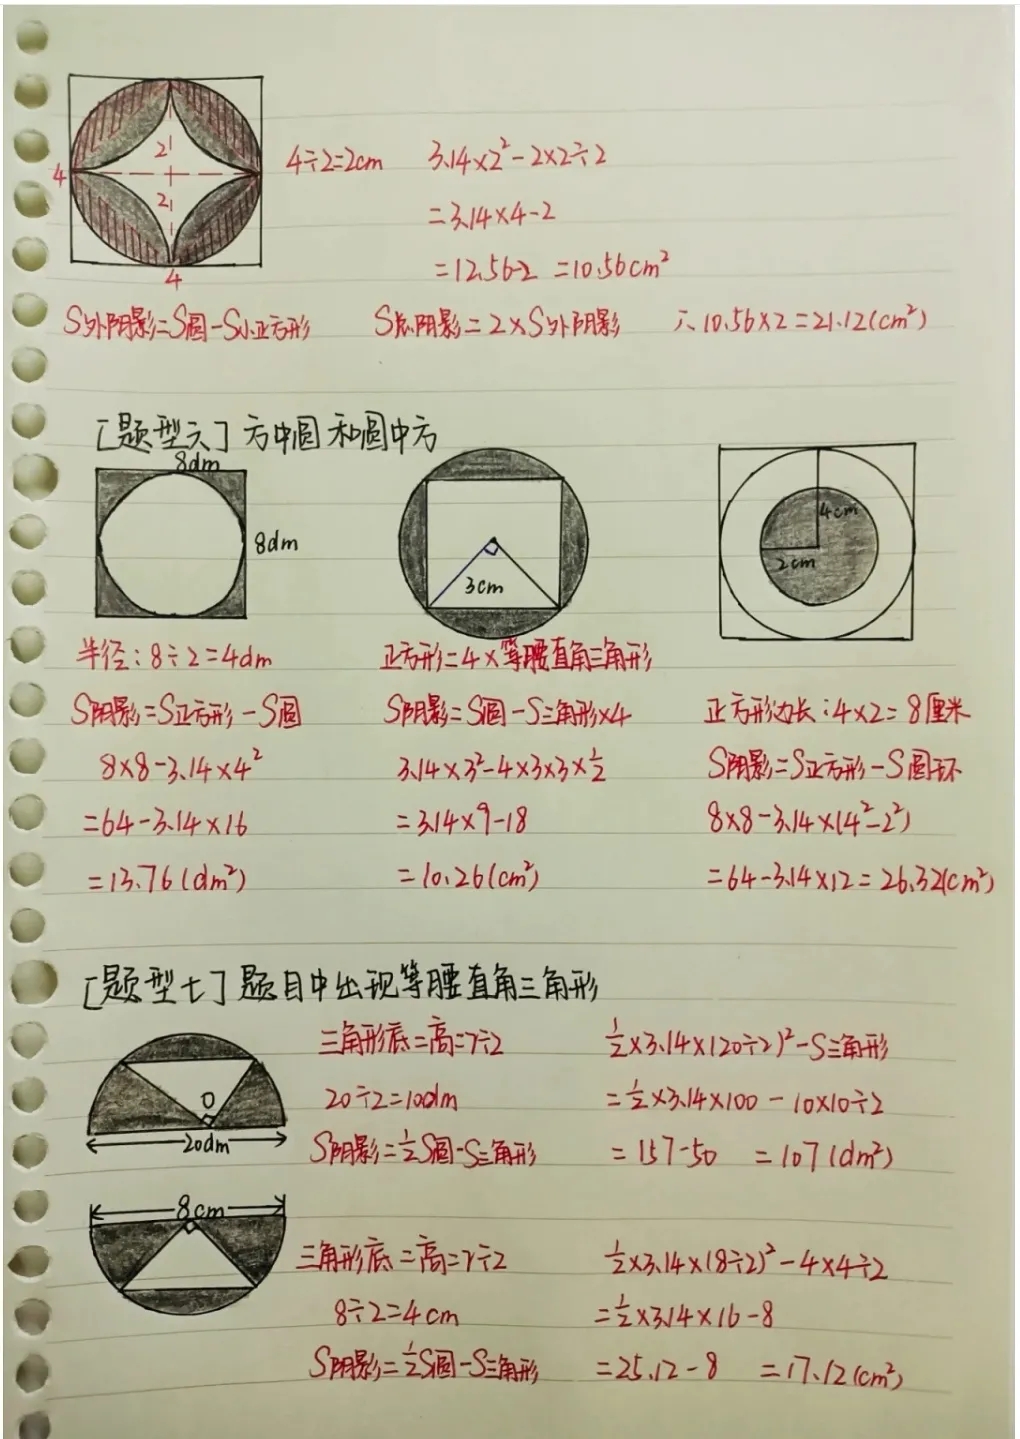 2
4
2
4
4÷2=2cm 3.14×2²-2×2÷2
=3.14×4-2
=12.56-2 =10.56cm²
S外阴影=S圆-S小正方形 S总阴影=2×S外阴影 ∴10.56×2=21.12(cm²)
[题型六]方中圆和圆中方
8dm
8dm
3cm
4cm
2cm
半径:8÷2=4dm
S阴影=S正方形-S圆
8×8-3.14×4²
=64-3.14×16
=13.76(dm²)
正方形=4×等腰直角三角形
S阴影=S圆-S三角形×4
3.14×3²-4×3×3×½
=3.14×9-18
=10.26(cm²)
正方形边长:4×2=8厘米
S阴影=S正方形-S圆环
8×8-3.14×(4²-2²)
=64-3.14×12=26.32(cm²)
[题型七]题目中出现等腰直角三角形
O
20dm
三角形底=高=r÷2
20÷2=10dm
S阴影=½S圆-S三角形
½×3.14×(20÷2)²-S三角形
=½×3.14×100-10×10÷2
=157-50 =107(dm²)
8cm
三角形底=高=r÷2
8÷2=4cm
S阴影=½S圆-S三角形
½×3.14×(8÷2)²-4×4÷2
=½×3.14×16-8
=25.12-8 =17.12(cm²)